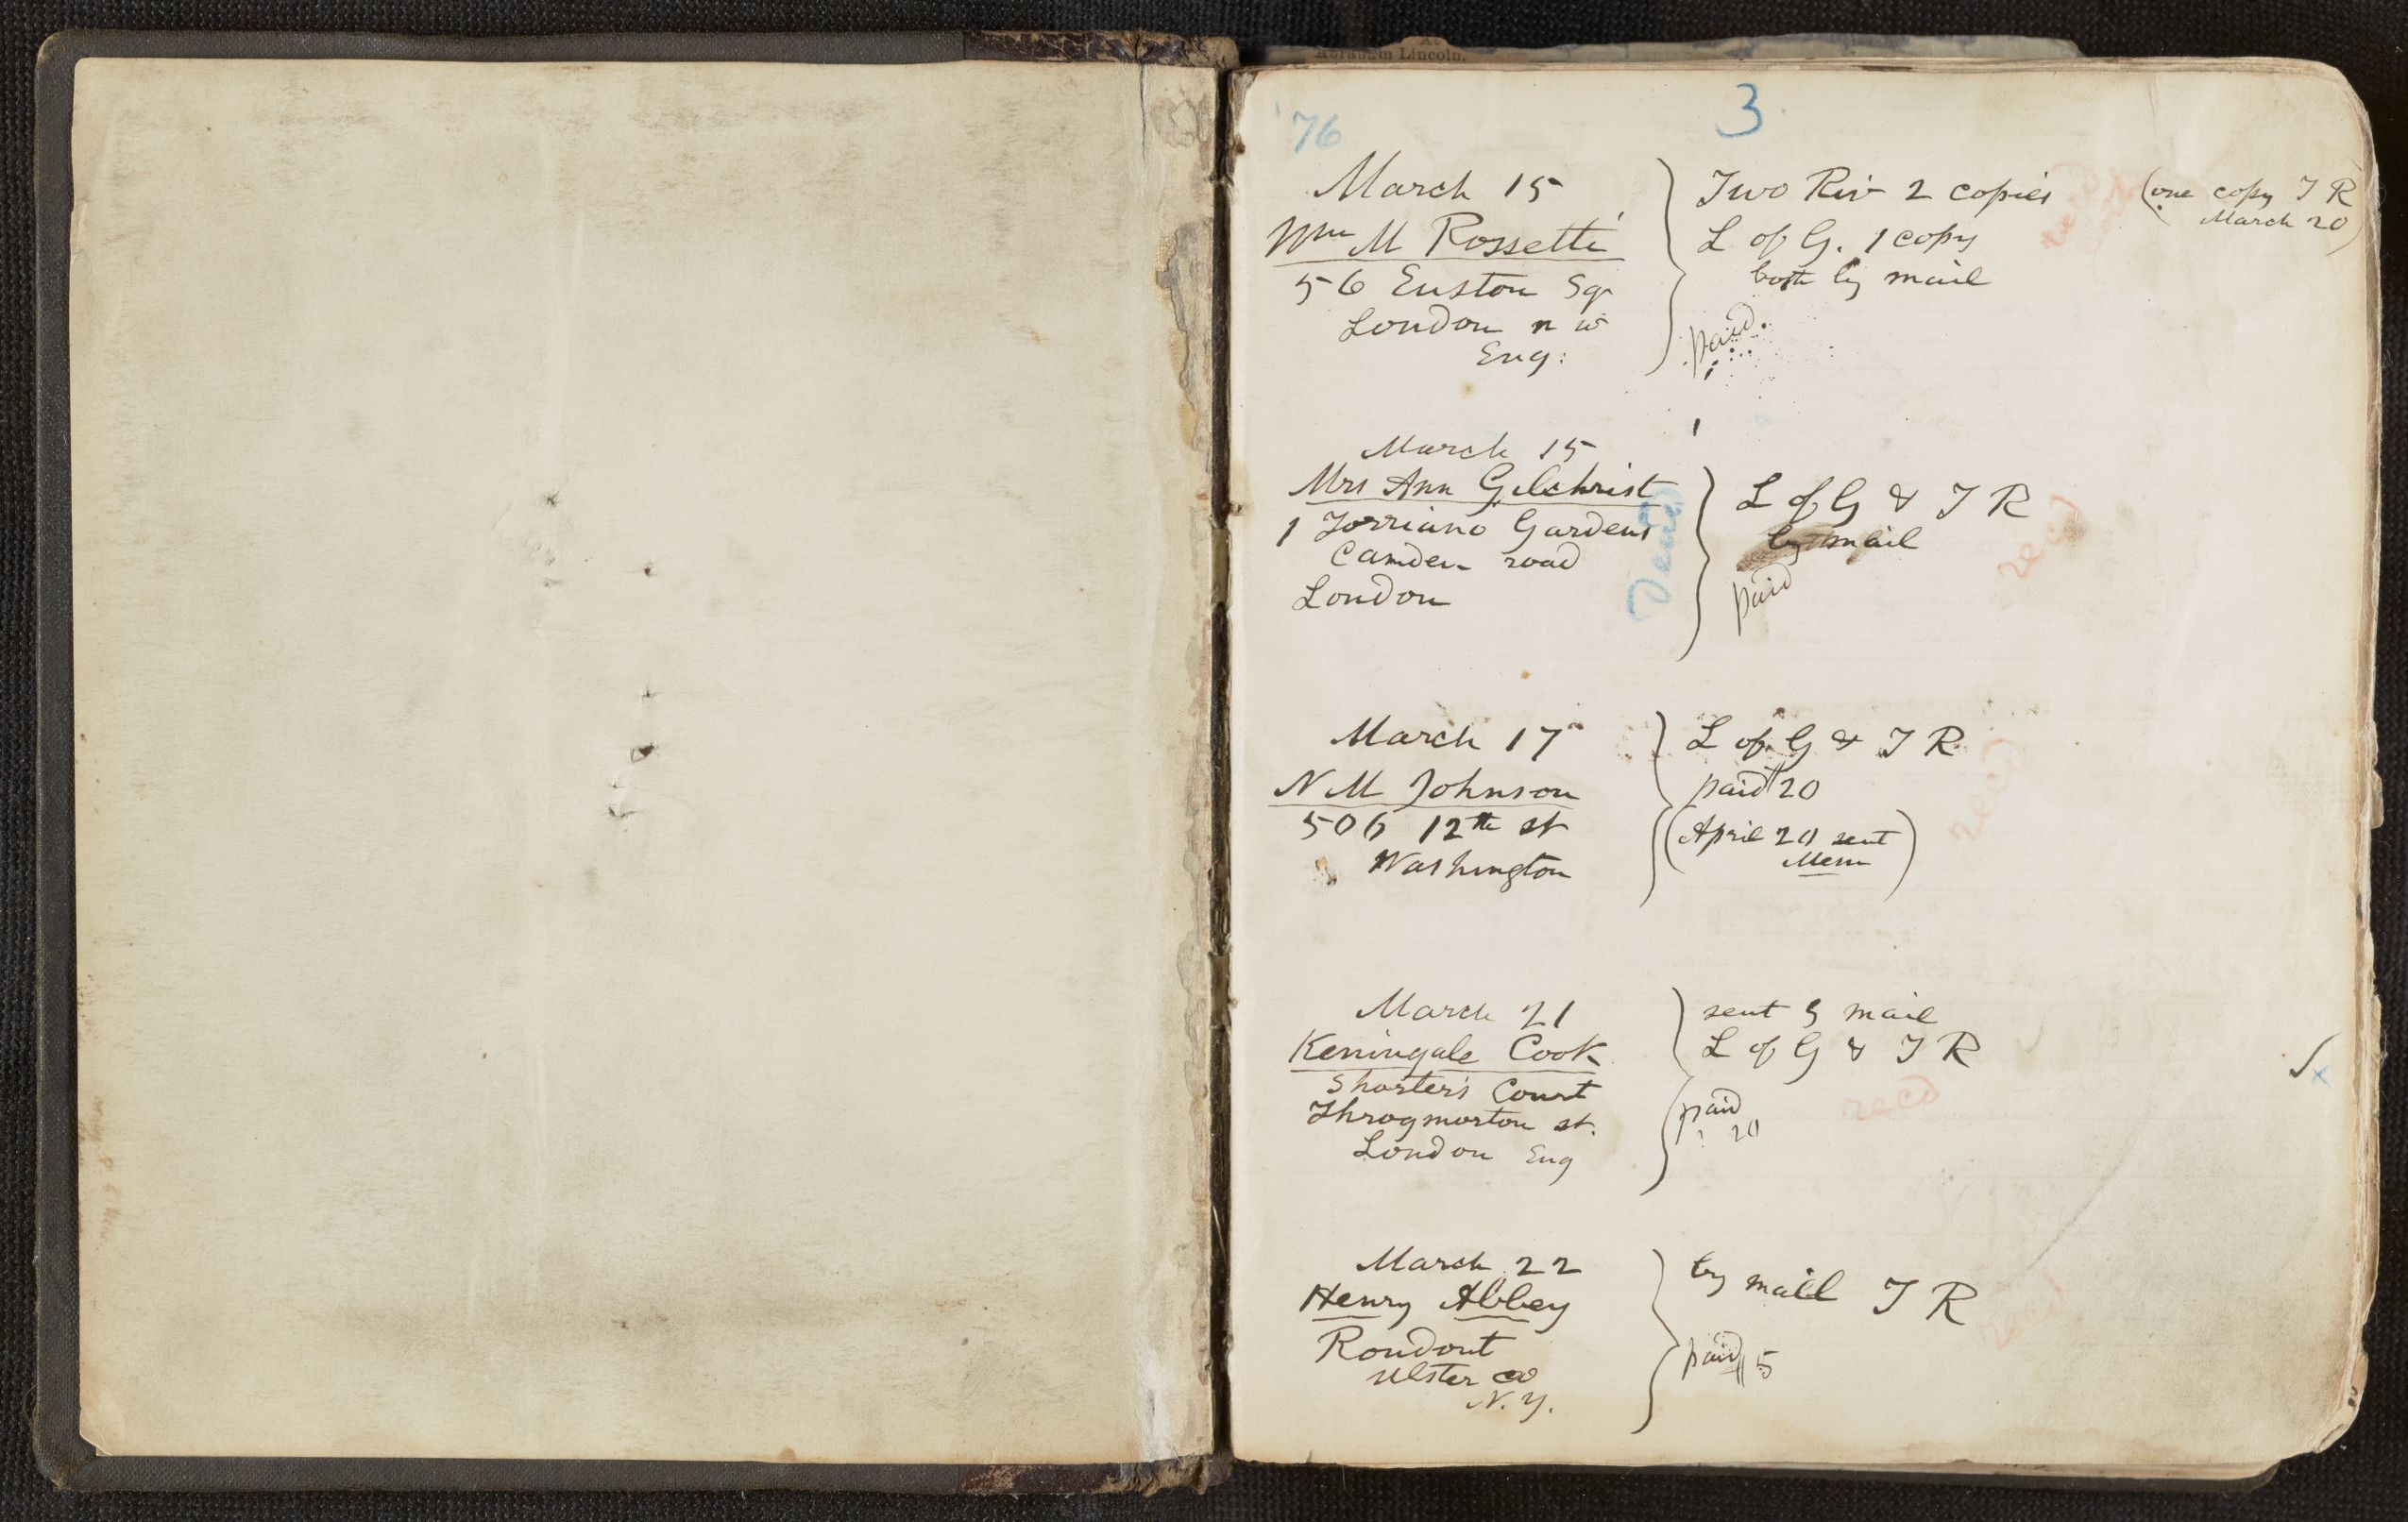 Abraham Lincoln.
'76
3
March 15
Wm M Rossetti
56 Euston Sq
London n w
Eng:
Two Riv 2 copies
L of G. 1 copy
both by mail
paid
recd
(one copy T R
March 20)
March 15
Mrs Ann Gilchrist
1 Torriano Gardens
Camden road
London
Dead
L of G & T R
by mail
paid
recd
March 17
N M Johnson
506 12th st
Washington
L of G & T R
paid $20
(April 20 sent
Mem)
recd
March 21
Keningale Cook
Shorter's Court
Throgmorton st.
London Eng
sent by mail
L of G & T R
paid
20
recd
March 22
Henry Abbey
Rondout
Ulster co
N. Y.
by mail T R
paid $5
recd